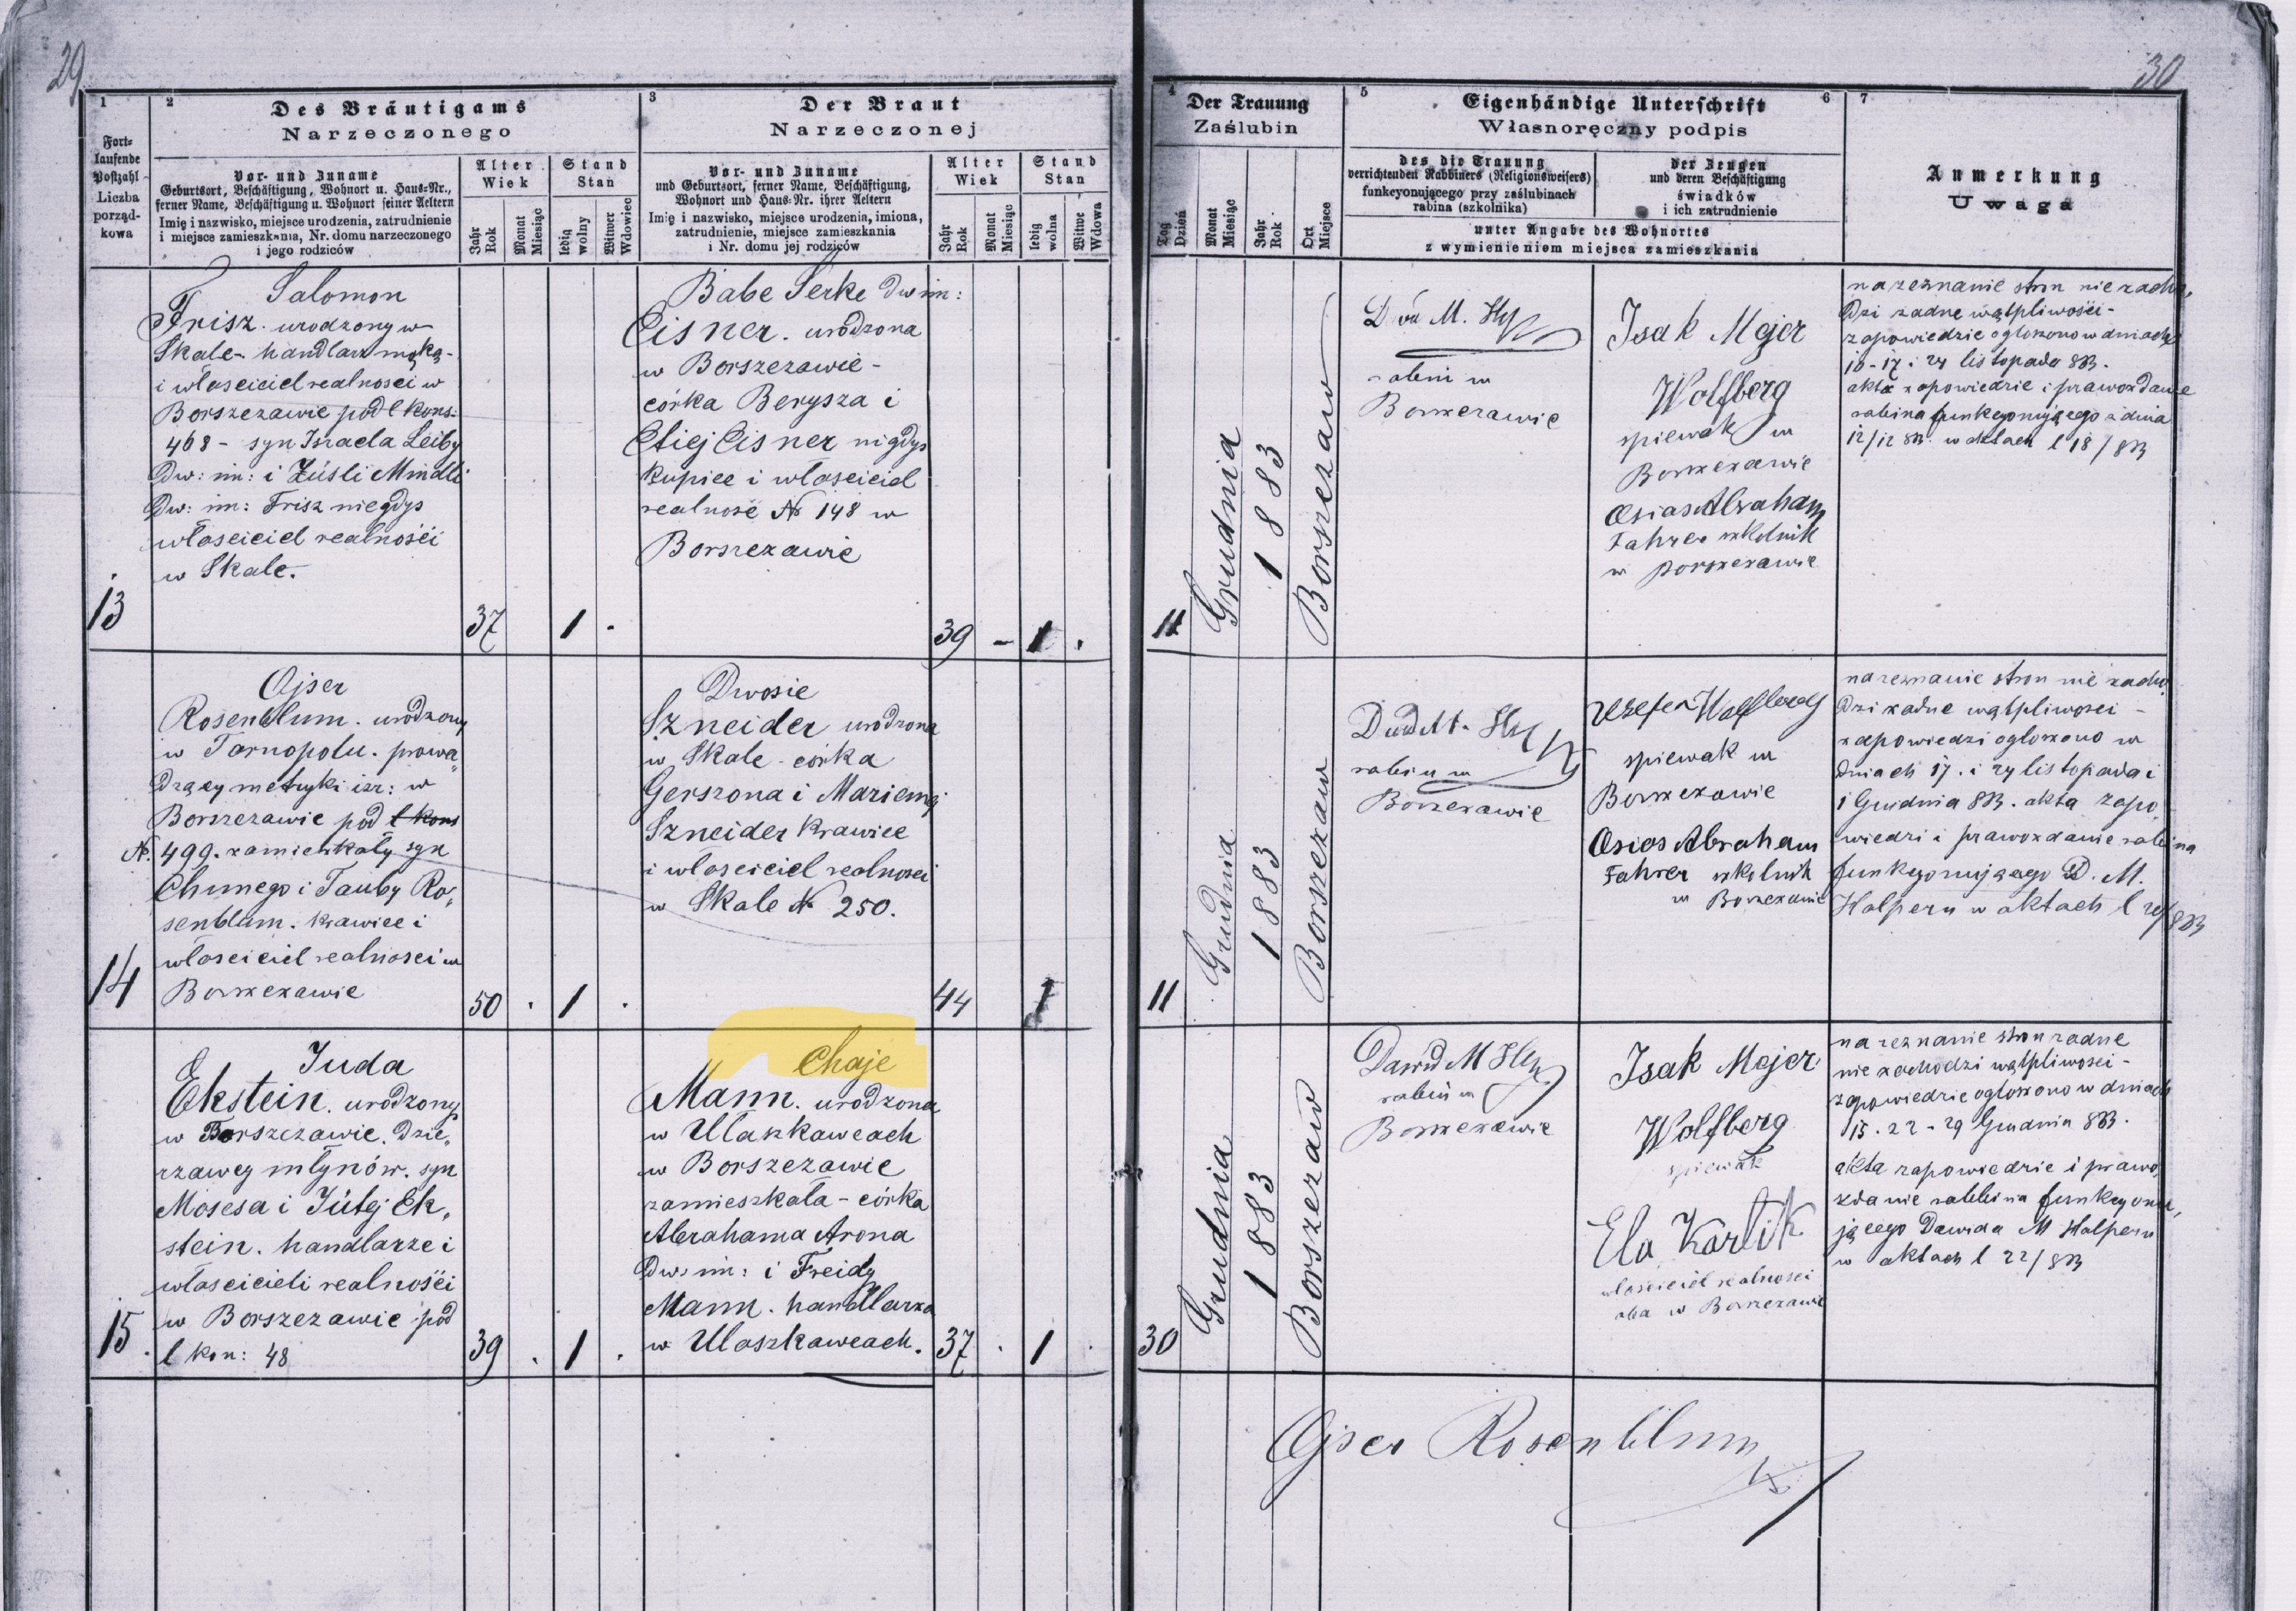 29
30
1
Fort-
laufende
Postzahl
Liczba
porząd-
kowa
2
Des Bräutigams
Narzeczonego
Vor- und Zuname
Geburtsort, Beschäftigung, Wohnort u. Haus-Nr.,
ferner Name, Beschäftigung u. Wohnort seiner Aeltern
Imię i nazwisko, miejsce urodzenia, zatrudnienie
i miejsce zamieszkania, Nr. domu narzeczonego
i jego rodziców
Alter
Wiek
Jahr
Rok
Monat
Miesiąc
Stand
Stan
ledig
wolny
Witwer
Wdowiec
3
Der Braut
Narzeczonej
Vor- und Zuname
und Geburtsort, ferner Name, Beschäftigung,
Wohnort und Haus-Nr. ihrer Aeltern
Imię i nazwisko, miejsce urodzenia, imiona,
zatrudnienie, miejsce zamieszkania
i Nr. domu jej rodziców
Alter
Wiek
Jahr
Rok
Monat
Miesiąc
Stand
Stan
ledig
wolna
Witwe
Wdowa
4
Der Trauung
Zaślubin
Tag
Dzień
Monat
Miesiąc
Jahr
Rok
Ort
Miejsce
5
Eigenhändige Unterschrift
6
Własnoręczny podpis
des die Trauung
verrichtenden Rabbiners (Religionsweisers)
funkcyonującego przy zaślubinach
rabina (szkolnika)
der Zeugen
und deren Beschäftigung
świadków
i ich zatrudnienie
unter Angabe des Wohnortes
z wymienieniem miejsca zamieszkania
7
Anmerkung
Uwaga
13
Salomon
Frisz. urodzony w
Skale - handlarz mąką -
i właściciel realności w
Borszczawie pod l kons:
468 - syn Israela Leiby
Dw: im: i Züsli Mindli
Dw: im: Frisz niegdys
właściciel realności
w Skale.
37
1
Babe Serke dw im:
Eisner. urodzona
w Borszczawie -
córka Berysza i
Etiej Eisner nigdys
kupiec i właściciel
realność № 148 w
Borszczawie
39 - 1
11
Grudnia
1883
Borszczaw
M.
rabin w
Borszczawie
Isak Mejer
Wolfberg
spiewak w
Borszczawie
Osias Abraham
Fahrer szkolnik
w Borszczawie
na zeznanie stron nie zacho,
dzi żadne wątpliwości -
zapowiedzie ogłoszono w dniach
10 - 17 i 24 listopada 883.
akta zapowiedzie i prawozdanie
rabina funkcyonującego z dnia
12/12 883. w aktach l 18/883
14
Ojser
Rosenblum. urodzony
w Tarnopolu. prowa„
dzący metryki izr: w
Borszczawie pod l kons
№. 499. zamieszkały syn
Chunego i Tauby Ro„
senblum. krawiec i
właściciel realności w
Borszczawie
50
1
Dwosie
Szneider urodzona
w Skale - córka
Gerszona i Mariemej
Szneider krawiec
i właściciel realności
w Skale № 250.
44
1
11
Grudnia
1883
Borszczaw
rabin w
Borszczawie
Wolfberg
spiewak w
Borszczawie
Osias Abraham
Fahrer szkolnik
w Borszczawie
na zeznanie stron nie zacho,
dzi żadne wątpliwości -
zapowiedzi ogłoszono w
dniach 17. i 24 listopada i
1 Grudnia 883. akta zapo„
wiedzi i prawozdanie rabina
funkcyonującego D. M.
Halpern w aktach l
15
Juda
Ekstein. urodzony
w Borszczawie. dzie„
rzawcy młynów. syn
Mosesa i Jütej Ek„
stein. handlarze i
właścicieli realności
w Borszczawie pod
l kon: 48
39
1
Chaje
Mann. urodzona
w Ułazkawcach
w Borszczawie
zamieszkała - córka
Abrahama Arona
Dw: im: i Freidy
Mann. handlarza
w Ułaszkawcach.
37
1
30
Grudnia
1883
Borszczaw
Dawid M
rabin w
Borszczawie
Isak Mejer
Wolfberg
spiewak
Ela Kartik
właściciel realności
w Borszczawie
na zeznanie stron żadne
nie zachodzi wątpliwości -
zapowiedzie ogłoszono w dniach
15. 22 - 29 Grudnia 883.
akta zapowiedzie i prawo„
zdanie rabbina funkcyonu„
jącego Dawida M Halpern
w aktach l 22/883
Ojser Rosenblum